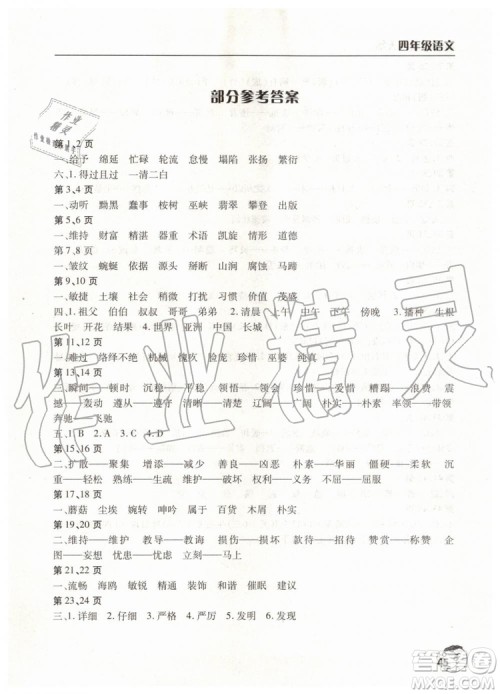 四年级语文
部分参考答案
第1,2页
一.给予 绵延 忙碌 轮流 怠慢 塌陷 张扬 繁衍
六、1.得过且过 一清二白
第3,4页
一.动听 黝黑 蠢事 梭梭 巫峡 翡翠 攀登 出版
第5,6页
一.维持 财富 精湛 器重 术语 凯旋 情形 道德
第7,8页
一.皱纹 蜿蜒 依据 源头 掰断 山涧 腐蚀 马蹄
第9,10页
一.敏捷 土壤 社会 稍微 打扰 兴奋 价值 茂盛
四.1.祖父 伯伯 叔叔 哥哥 弟弟 2.清晨 上午 中午 下午 傍晚 3.播种 生根
长叶 开花 结果 4.世界 亚洲 中国 长城
第11,12页
一.难过 络绎不绝 机械 像疾 脸庞 珍惜 巫婆 纯真
第13,14页
三.瞬间——顿时 沉稳——平稳 悭吝——吝啬 珍惜——爱惜 糟蹋——浪费 震
撼——轰动 遵从——遵守 清晰——清楚 辽阔——广阔 朴实——朴素 率领——带领
奔驰——飞驰
五、1.B 2.A 3.C 4.D
第15,16页
三.扩散——聚集 增添——减少 善良——凶恶 朴素——华丽 僵硬——柔软 沉
重——轻松 熟练——生疏 维护——破坏 权利——义务 不屈——屈服
第17,18页
一.蘑菇 尘埃 婉转 呻吟 花圃 本屑 血液 朴实
第19,20页
二.维持——维护 教导——教诲 损伤——损坏 即使——尽管 陶醉——沉醉 企
图——妄想 忧患——忧虑 立刻——马上
第21,22页
一.流畅 海鸥 敏锐 精通 装饰 和谐 健康 建议
第23,24页
三.1.详细 2.仔细 3.严格 4.严厉 5.发明 6.发现
作业精灵